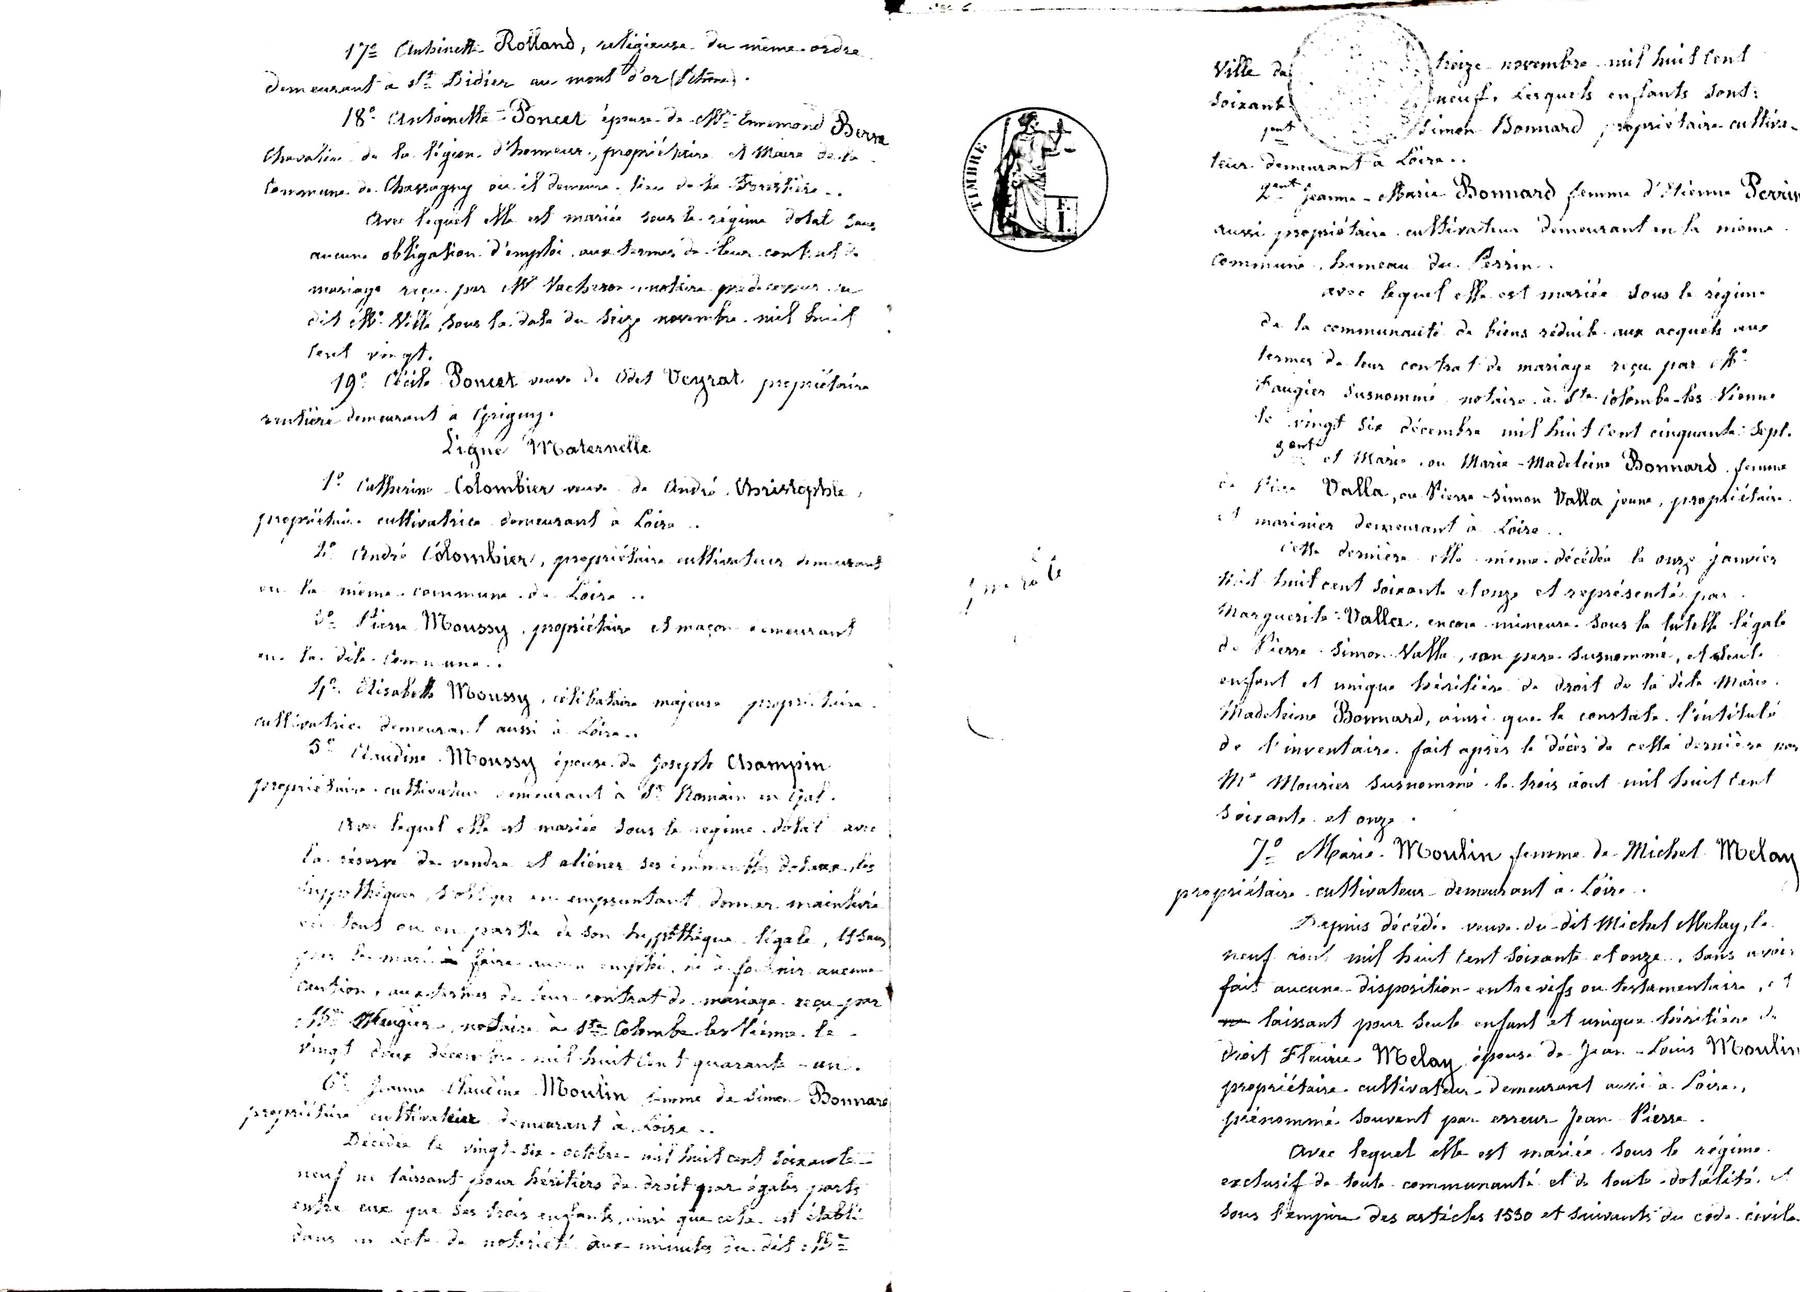 17º Antoinette Rolland, religieuse du même ordre
demeurant à St Didier au mont d'or (Rhône).
18º Antoinette Poncet épouse de Mr Ennemond Berra
Chevalier de la légion d'honneur, propriétaire et Maire de la
Commune de Chassagny où il demeure lieu de la Forestière..
Avec lequel elle est mariée sous le régime dotal sans
aucune obligation d'emploi aux termes de leur contrat de
mariage reçu par Me Vacheron notaire prédécesseur du
dit Me Ville, sous la date du seize novembre mil huit
cent vingt.
19º Cécile Poncet veuve de Odet Veyrat propriétaire
rentière demeurant à Grigny.
Ligne Maternelle
1º Catherine Colombier veuve de André Christophle,
propriétaire cultivatrice demeurant à Loire..
2º André Colombier, propriétaire cultivateur demeurant
en la même commune de Loire..
3º Pierre Moussy, propriétaire et maçon demeurant
en la dite commune..
4º Elisabeth Moussy, célibataire majeure propriétaire
cultivatrice demeurant aussi à Loire..
5º Claudine Moussy épouse de Joseph Champin
propriétaire cultivateur demeurant à St Romain en Gal.
Avec lequel elle est mariée sous le régime dotal avec
la réserve de vendre et aliéner ses immeubles dotaux, les
hypothéquer, s'obliger en empruntant donner mainlevée
en tout ou en partie de son hypothèque légale, et sans
par le mari à faire aucun emploi, ni à fournir aucune
caution, aux termes de leur contrat de mariage reçu par
Me Faugier, notaire à Ste Colombe les Vienne le
vingt deux décembre mil huit cent quarante-un.
6º Jeanne Claudine Moulin femme de Simon Bonnard
propriétaire cultivateur demeurant à Loire..
Décédée le vingt-six octobre mil huit cent soixante
neuf ne laissant pour héritiers de droit par égales parts
entre eux que ses trois enfants, ainsi que cela est établi
dans un acte de notoriété aux minutes du dit Me
TIMBRE
1 F.
1er rôle
Ville du treize novembre mil huit cent
soixante neuf, lesquels enfants sont:
1ent Simon Bonnard propriétaire cultiva-
teur demeurant à Loire..
2ent Jeanne-Marie Bonnard femme d'Etienne Perrin
aussi propriétaire cultivateur demeurant en la même
commune, hameau du Perrin..
avec lequel elle est mariée sous le régime
de la communauté de biens réduite aux acquêts aux
termes de leur contrat de mariage reçu par Me
Faugier susnommé notaire à Ste Colombe-les Vienne
le vingt six décembre mil huit cent cinquante-sept.
3ent et Marie ou Marie-Madeleine Bonnard femme
de Pierre Valla, ou Pierre-Simon Valla jeune, propriétaire
et marinier demeurant à Loire..
cette dernière elle même décédée le onze janvier
mil huit cent soixante et onze et représentée par
Marguerite Valla, encore mineure sous la tutelle légale
de Pierre-Simon Valla, son père susnommé, et seule
enfant et unique héritière de droit de la dite Marie
Madeleine Bonnard, ainsi que le constate l'intitulé
de l'inventaire fait après le décès de cette dernière par
Me Mourier susnommé le trois août mil huit cent
soixante et onze.
7º Marie Moulin femme de Michel Melay
propriétaire cultivateur demeurant à Loire..
Depuis décédée veuve du dit Michel Melay, le
neuf août mil huit cent soixante et onze, sans avoir
fait aucune disposition entre vifs ou testamentaire, et
laissant pour seule enfant et unique héritière de
droit Fleurie Melay épouse de Jean-Louis Moulin
propriétaire cultivateur demeurant aussi à Loire,
prénommé souvent par erreur Jean Pierre.
Avec lequel elle est mariée sous le régime
exclusif de toute communauté et de toute dotalité, et
sous l'empire des articles 1530 et suivants du code civil